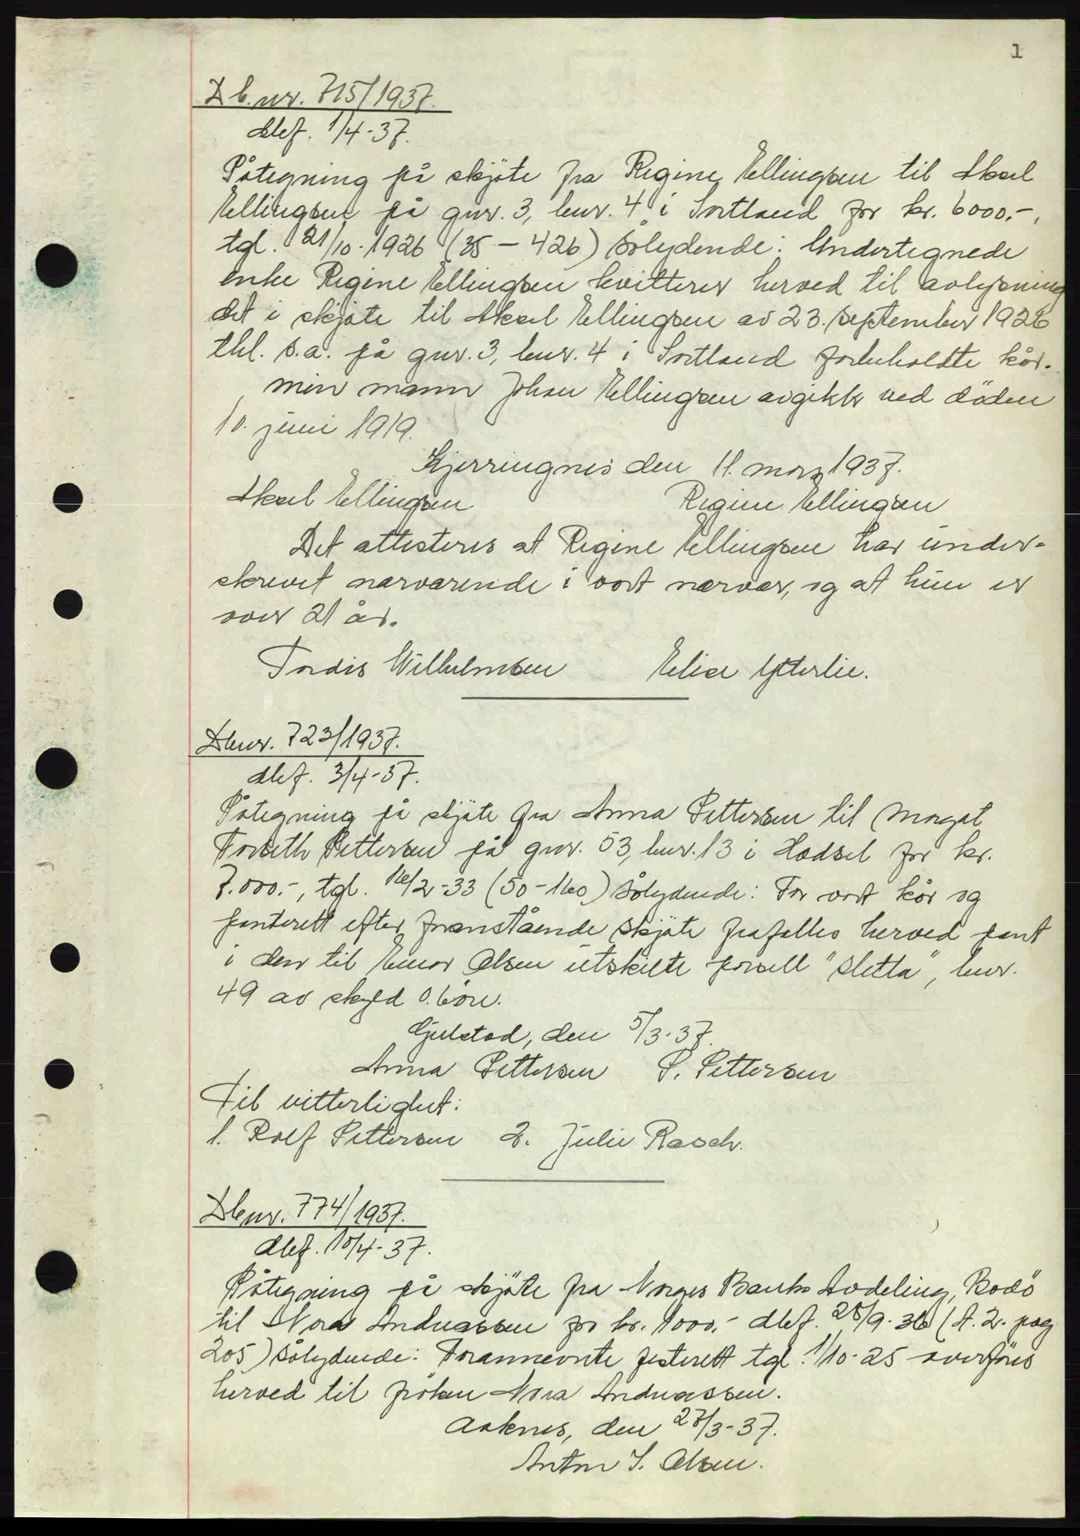 1
Db.nr. 715/1937.
dbf. 1/4-37.
Påtegning på skjöte fra Regine Ellingsen til Aksel
Ellingsen på gnr. 3, bnr. 4 i Sortland for kr. 6000.-,
tgl. 21/10.1926 (35-426) sålydende: Undertegnede
enke Regine Ellingsen kvitterer herved til avlysning
det i skjöte til Aksel Ellingsen av 23. september 1926
thl. s.a. på gnr. 3, bnr. 4 i Sortland forbeholdte kår.
min mann Johan Ellingsen avgikk ved döden
10. juni 1919.
Kjerringnes den 11. mars 1937.
Aksel Ellingsen Regine Ellingsen
Det attesteres at Regine Ellingsen har under-
skrevet nærværende i vort nærvær, og at hun er
over 21 år.
Tordis Wilhelmsen Elise Ytterlie.
Dbnr. 723/1937.
dbf. 3/4-37.
Påtegning på skjöte fra Anna Pettersen til
Pettersen på gnr. 53, bnr. 13 i Hadsel for kr.
7.000.-, tgl. 16/2-33 (50-160) sålydende: For vort kår og
panterett efter foranstående skjöte frafalles herved pant
i den til Einar Olsen utskilte parsell "Sletta", bnr.
49 av skyld 0.6 öre.
Gulstad, den 5/3-37.
Anna Pettersen P. Pettersen
Til vitterlighet:
1. Rolf Pettersen 2. Julie Rasch.
Dbnr. 774/1937.
dbf. 10/4-37.
Påtegning på skjöte fra Norges Banks Avdeling, Bodö
til Nora Andreassen for kr. 1000.- dbf. 28/9-36 (A.2. pag
205) sålydende: Forannevnte festerett tgl. 1/10-25 overföres
herved til fröken Nora Andreassen.
Aaknes, den 27/3-37.
Anton J. Olsen.